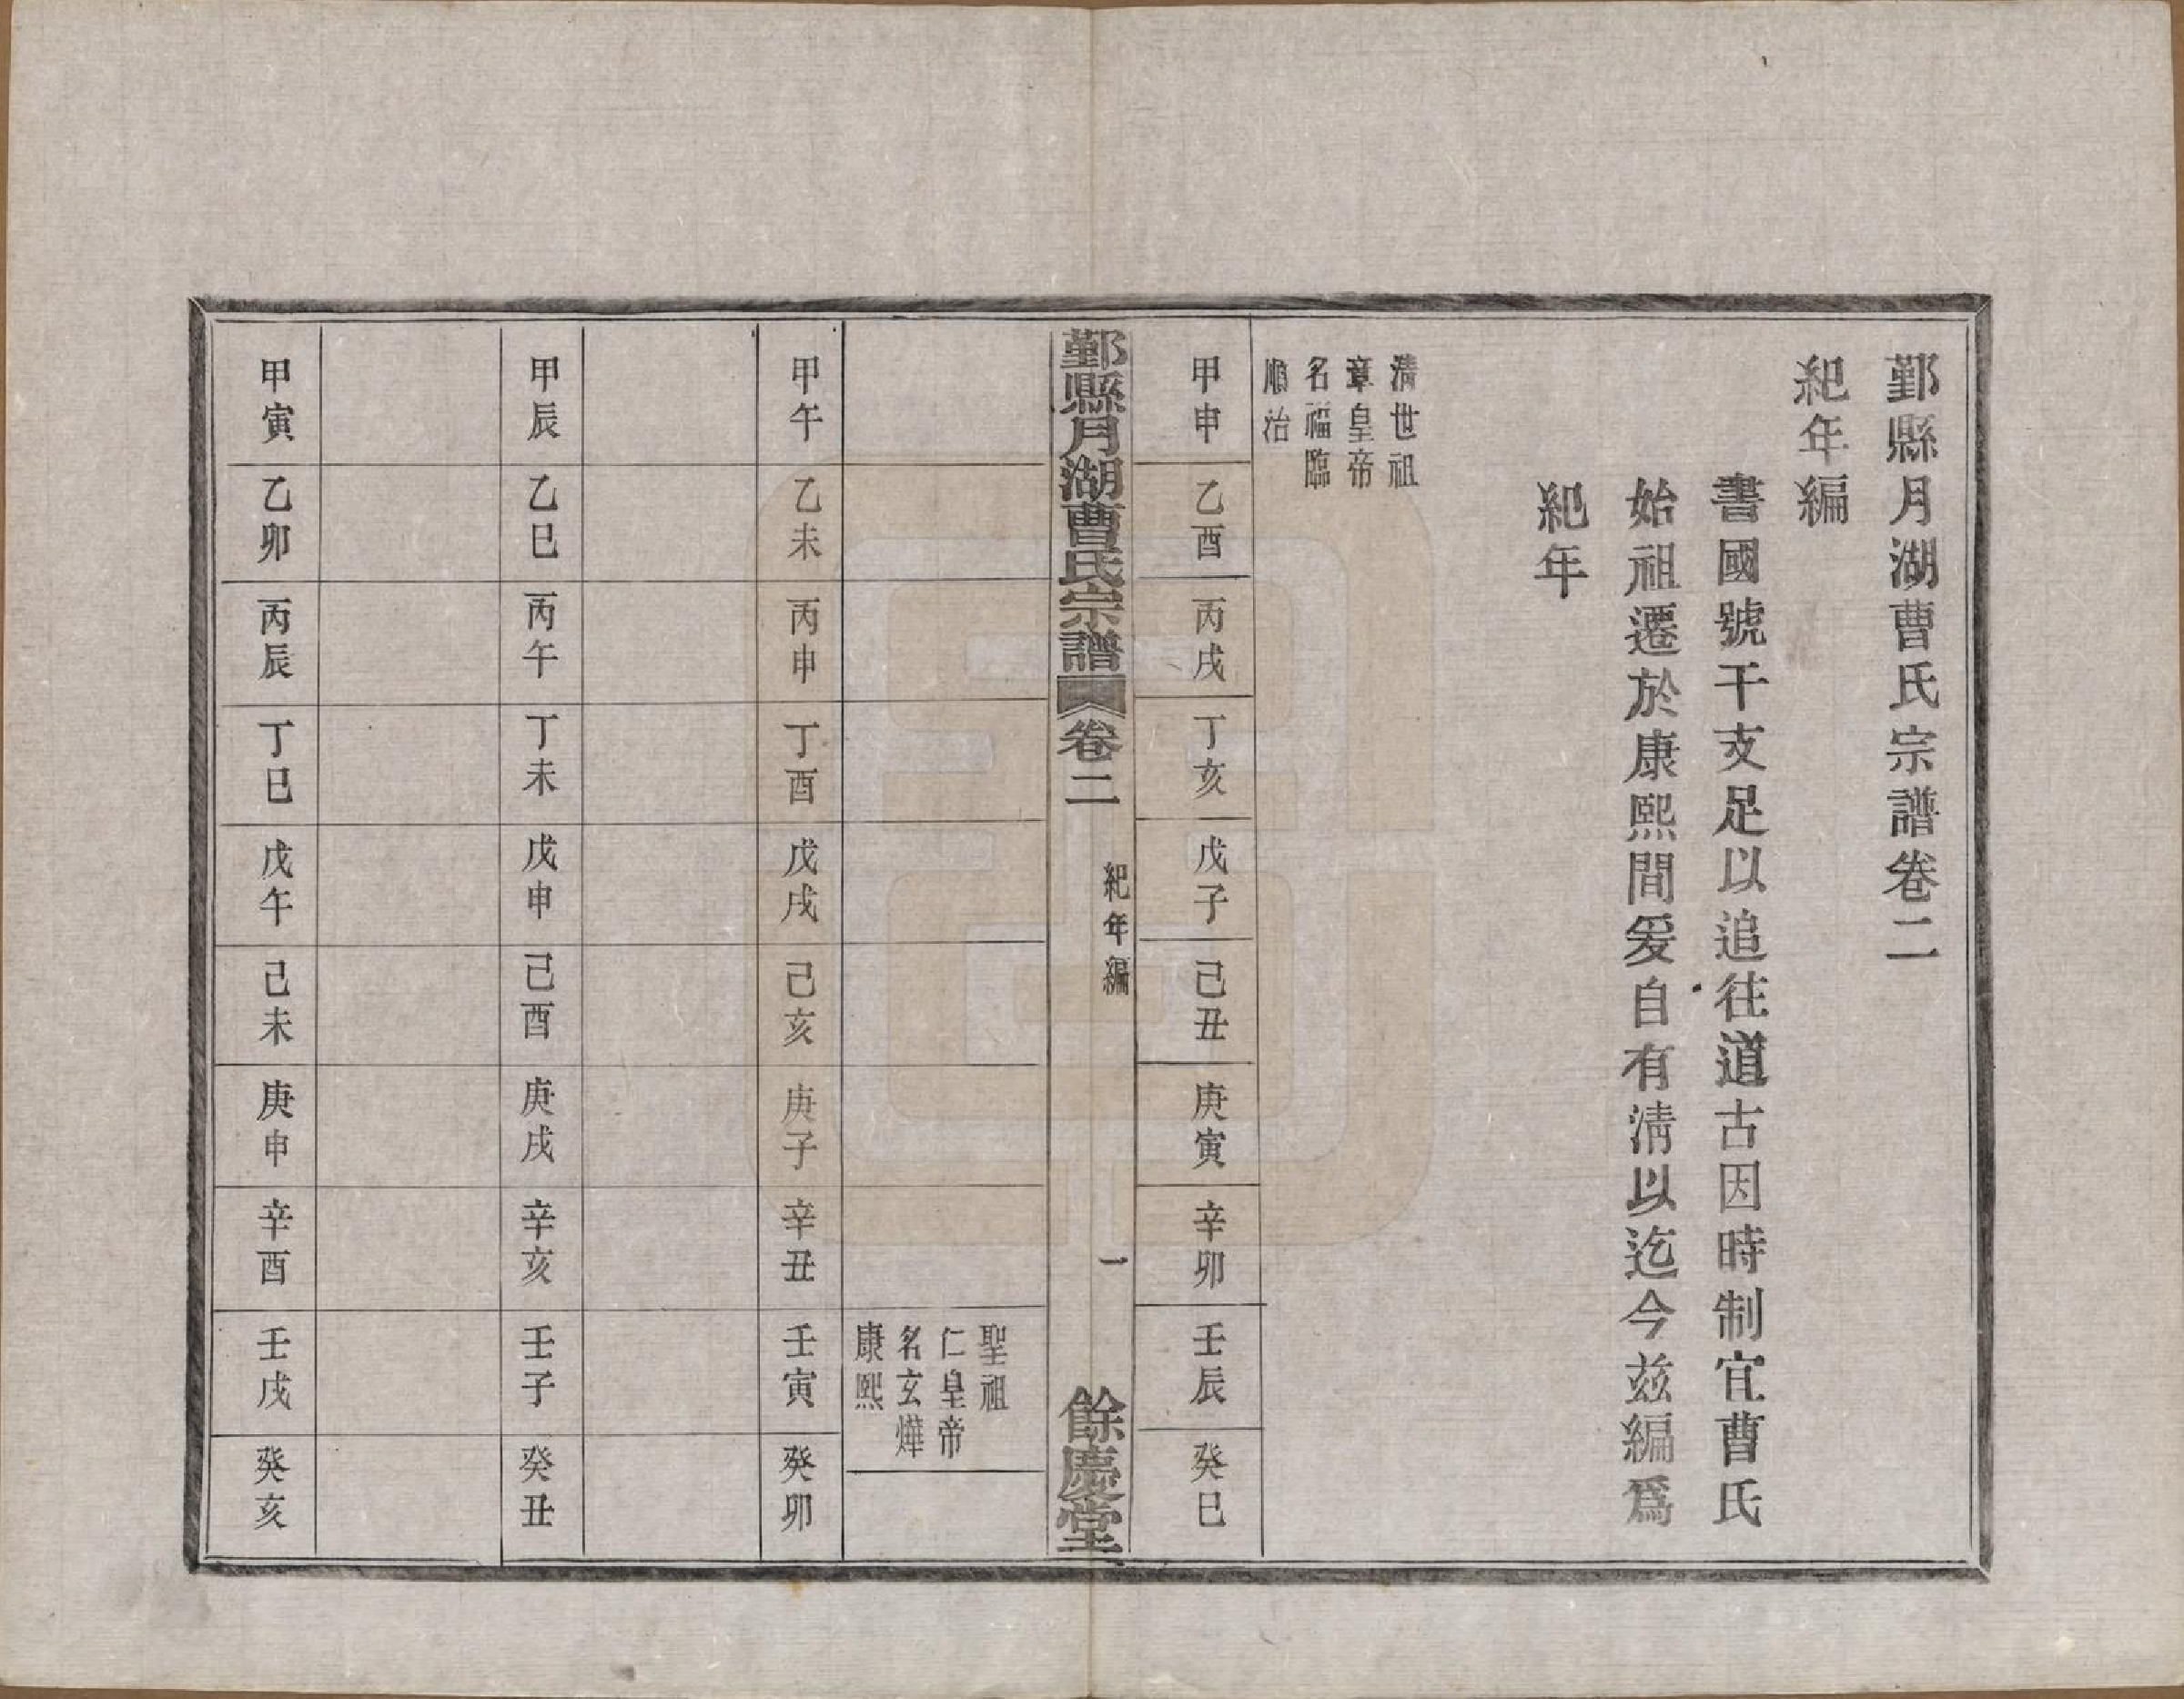 鄞縣月湖曹氏宗譜卷二
紀年編
書國號干支足以追往道古因時制宜曹氏
始祖遷於康熙間爰自有淸以迄今茲編爲
紀年
淸世祖
章皇帝
名福臨
順治
甲申
乙酉
丙戌
丁亥
戊子
己丑
庚寅
辛卯
壬辰
癸巳
鄞縣月湖曹氏宗譜 卷二 紀年編 一 餘慶堂
聖祖
仁皇帝
名玄燁
康熙
甲午
乙未
丙申
丁酉
戊戌
己亥
庚子
辛丑
壬寅
癸卯
甲辰
乙巳
丙午
丁未
戊申
己酉
庚戌
辛亥
壬子
癸丑
甲寅
乙卯
丙辰
丁巳
戊午
己未
庚申
辛酉
壬戌
癸亥